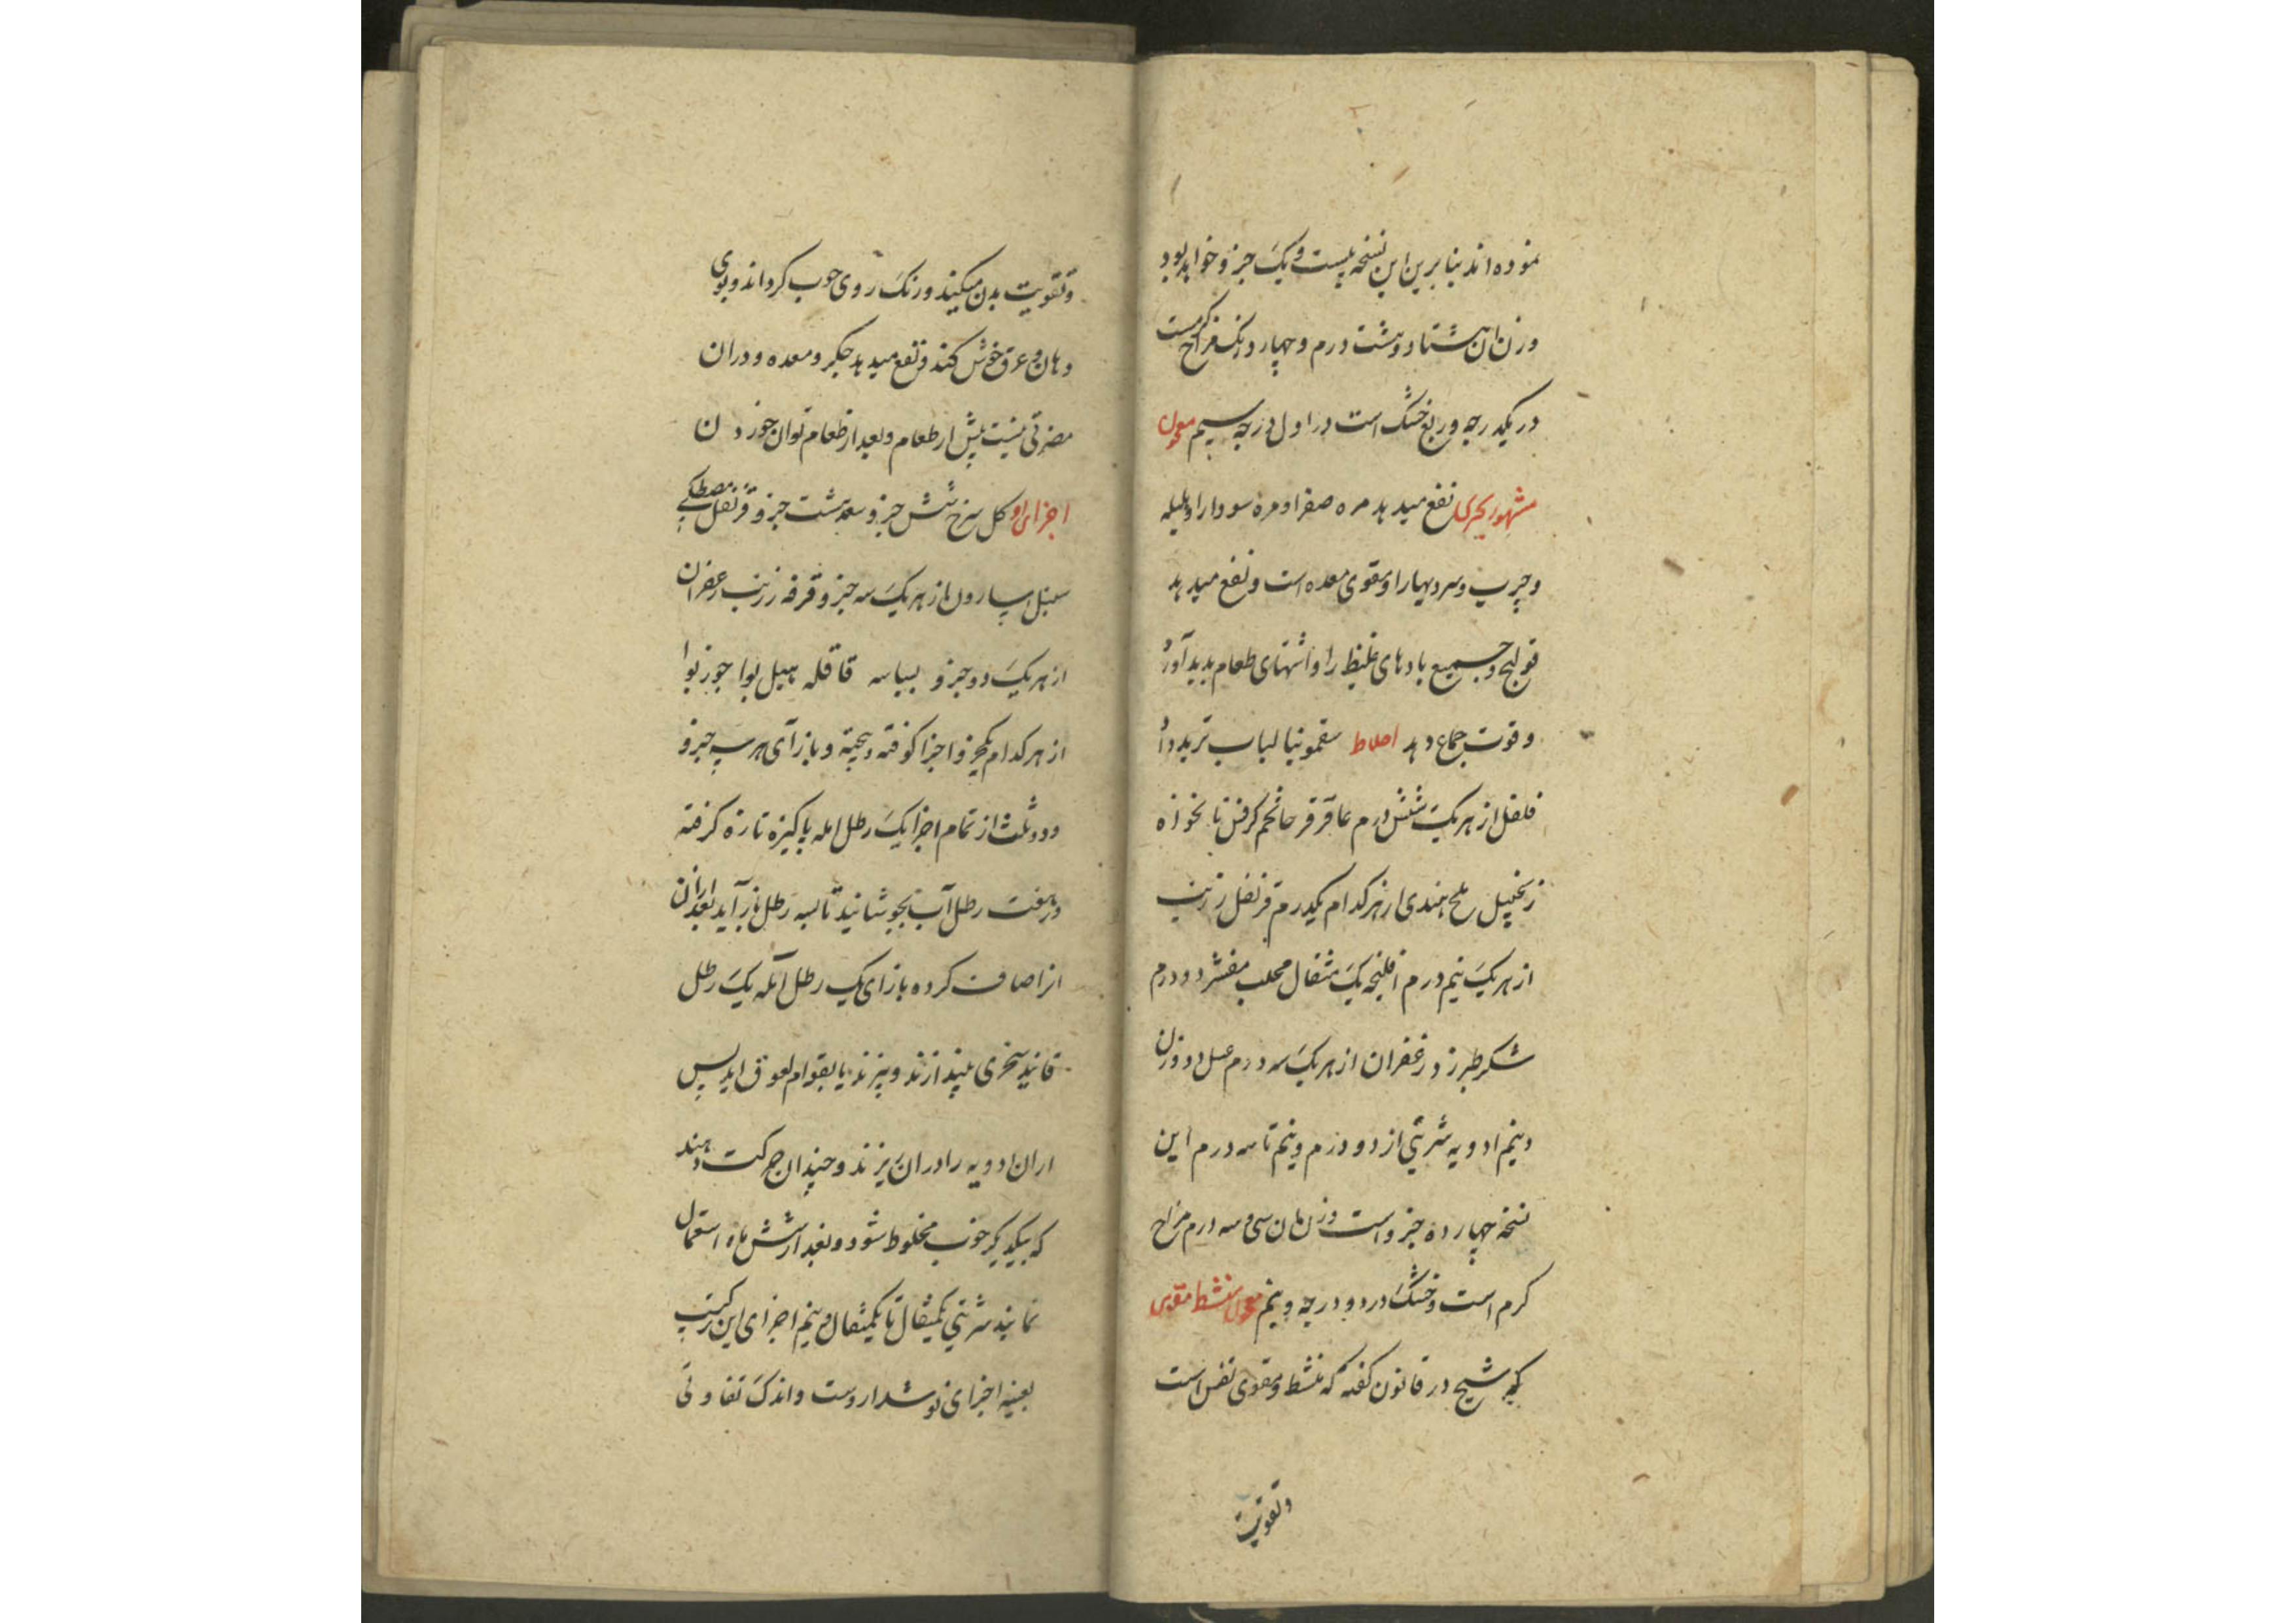 نموده اند بنا برین این نسخه بیست و یک جزو خواهد بود
وزن ان هشتاد و هشت درم و چهار دانک مزاج کرمست
در یکدرجه و ربع خشک است در اول درجه سیم معجون
مشهور بحری نفع میدهد مره صفرا و مره سودا را و بلیله
و چرب و سردیها را و مقوی معده است و نفع میدهد
قولنج و جمیع بادهای غلیظ را و اشتهای طعام پدید آورد
و قوت جماع دهد اخلاط سقمونیا لباب تربد دا
فلفل از هر یک شش درم عاقرقرحا تخم کرفس نانخواه
زنجبیل ملح هندی از هر کدام یکدرم قرنفل زرنب
از هر یک نیم درم افلنجه یک مثقال محلب مقشر دو درم
شکر طبرزد زعفران از هر یک سه درم عسل دو وزن
و نیم ادویه شربتی از دو درم و نیم تا سه درم این
نسخه چهارده جزو است وزن ان سی و سه درم مزاج
کرم است و خشک در دو درجه و نیم معجون منشط مقوی
که شیخ در قانون کفته که منشط و مقوی نفس است
و تقویت
و تقویت بدن میکند و رنک روی خوب کرداند و بوی
دهان و عرق خوش کند و نفع میدهد جکر و معده و در ان
مضرتی نیست پیش از طعام و بعد از طعام توان خوردن
اجزای او کل سرخ شش جزو سعد هشت جزو قرنفل مصطکی
سنبل اسارون از هر یک سه جزو قرفه زرنب زعفران
از هر یک دو جزو بسباسه قاقله هیل بوا جوز بوا
از هر کدام یکجزو اجزا کوفته و بیخته و بازای هر سه جزو
و دو ثلث از تمام اجزا یک رطل امله پاکیزه تازه کرفته
در هفت رطل آب بجوشانید تا بسه رطل باز آید بعد از ان
انرا صاف کرده بازای یک رطل آمله یک رطل
فانید سنجری بیندازند و بپزند تا بقوام لعوق اید پس
از ان ادویه را در ان ریزند و چندان حرکت دهند
که بیکدیکر خوب مخلوط شود و بعد از شش ماه استعمال
نمایند شربتی یکمثقال تا یکمثقال و نیم اجزای این ترکیب
بعینه اجزای نوشداروست و اندک تفاوتی